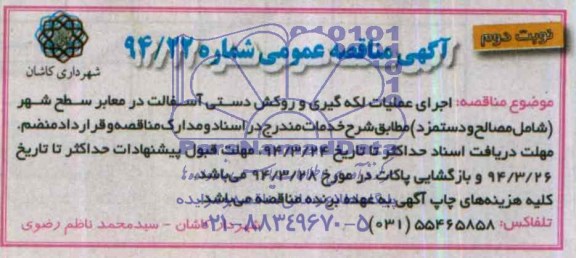 نوبت دوم
آگهی مناقصه عمومی شماره ۹۴/۲۲
شهرداری کاشان
موضوع مناقصه: اجرای عملیات لکه گیری و روکش دستی آسفالت در معابر سطح شهر
(شامل مصالح و دستمزد) مطابق شرح خدمات مندرج در اسناد و مدارک مناقصه و قرارداد منضم.
مهلت دریافت اسناد حداکثر تا تاریخ ۹۴/۳/۲۴، مهلت قبول پیشنهادات حداکثر تا تاریخ
۹۴/۳/۲۶ و بازگشایی پاکات در مورخ ۹۴/۳/۲۸ می‌باشد.
کلیه هزینه‌های چاپ آگهی به عهده برنده مناقصه می‌باشد.
تلفاکس: ۵۵۴۶۵۸۵۸ (۰۳۱)
شهردار کاشان - سیدمحمد ناظم رضوی
۰۲۱-۸۸۳۴۹۶۷۰-۵